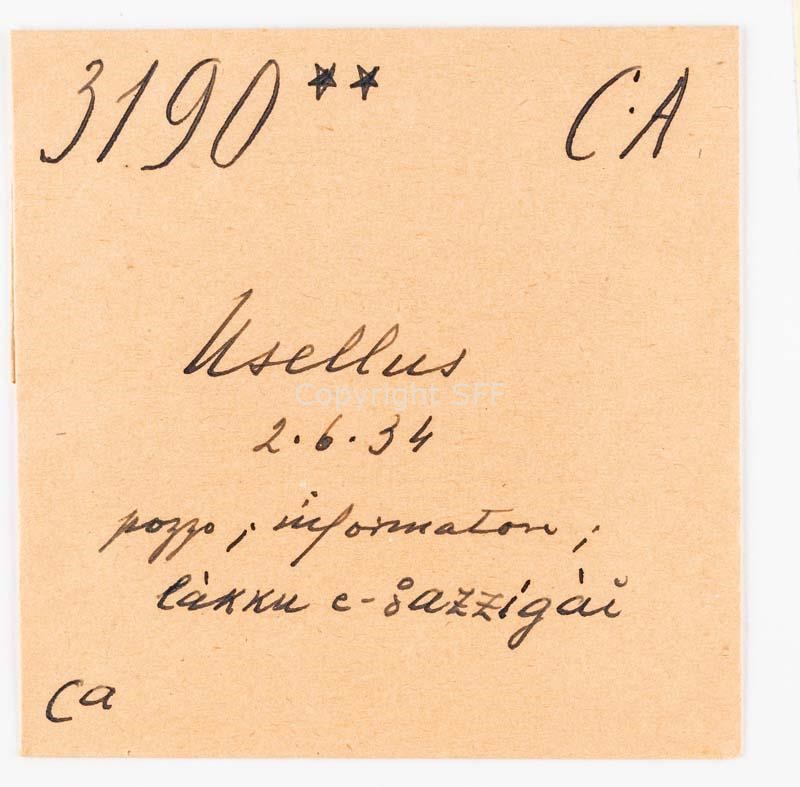 3190 ** C.A
Usellus
Copyright SFF
2.6.34
pozzo ; informatori ;
làkku e-
Ca